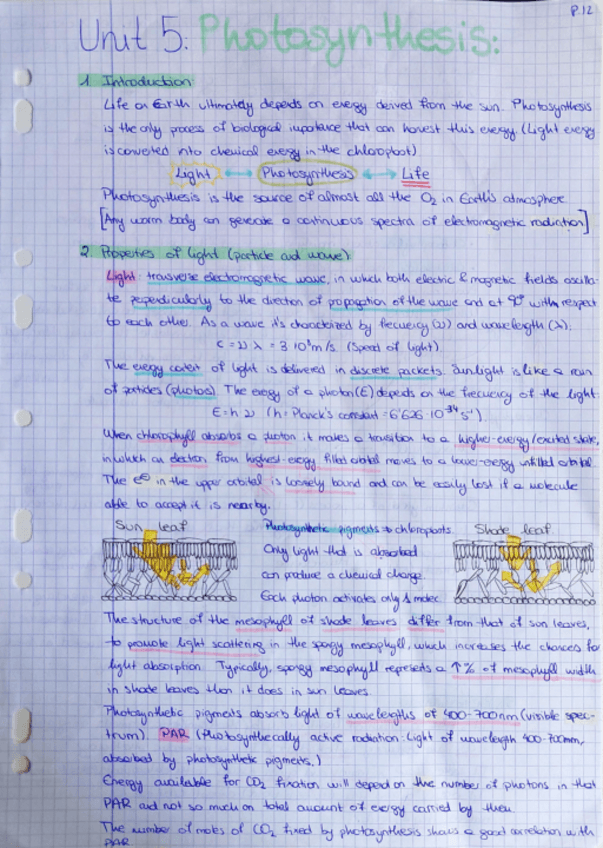 P.12
Unit 5: Photosynthesis:
1 Introduction:
Life on Earth ultimately depends on energy derived from the sun. Photosynthesis
is the only process of biological importance that can harvest this energy (Light energy
is converted into chemical energy in the chloroplast)
Light ↔ Photosynthesis ↔ Life
Photosynthesis is the source of almost all the O2 in Earth's atmosphere
[Any warm body can generate a continuous spectra of electromagnetic radiation]
2 Properties of light (particle and wave):
Light: transverse electromagnetic wave, in which both electric & magnetic fields oscilla-
te perpendicularly to the direction of propagation of the wave and at 90° with respect
to each other. As a wave it's characterized by frecuency (ν) and wavelength (λ).
c = ν λ = 3·10⁸ m/s. (Speed of light).
The energy content of light is delivered in discrete packets. Sunlight is like a rain
of particles (photons). The energy of a photon (E) depends on the frecuency of the light:
E = h ν (h = Planck's constant = 6'626 · 10⁻³⁴ s⁻¹).
When chlorophyll absorbs a photon it makes a transition to a higher-energy/excited state,
in which an electron from highest-energy filled orbital moves to a lower-energy unfilled orbital.
The e⁻ in the upper orbital is loosely bound and can be easily lost if a molecule
able to accept it is nearby.
Sun leaf
Photosynthetic pigments → chloroplasts.
Only light that is absorbed
can produce a chemical change.
Each photon activates only 1 molec.
Shade leaf
The structure of the mesophyll of shade leaves differ from that of sun leaves,
to promote light scattering in the spongy mesophyll, which increases the chances for
light absorption. Typically, spongy mesophyll represents a ↑% of mesophyll width
in shade leaves than it does in sun leaves.
Photosynthetic pigments absorb light of wavelengths of 400-700nm (visible spec-
trum). PAR (Photosynthetically active radiation: light of wavelength 400-700nm,
absorbed by photosynthetic pigments.)
Energy available for CO2 fixation will depend on the number of photons in that
PAR and not so much on total amount of energy carried by them.
The number of moles of CO2 fixed by photosynthesis shows a good correlation with
PAR